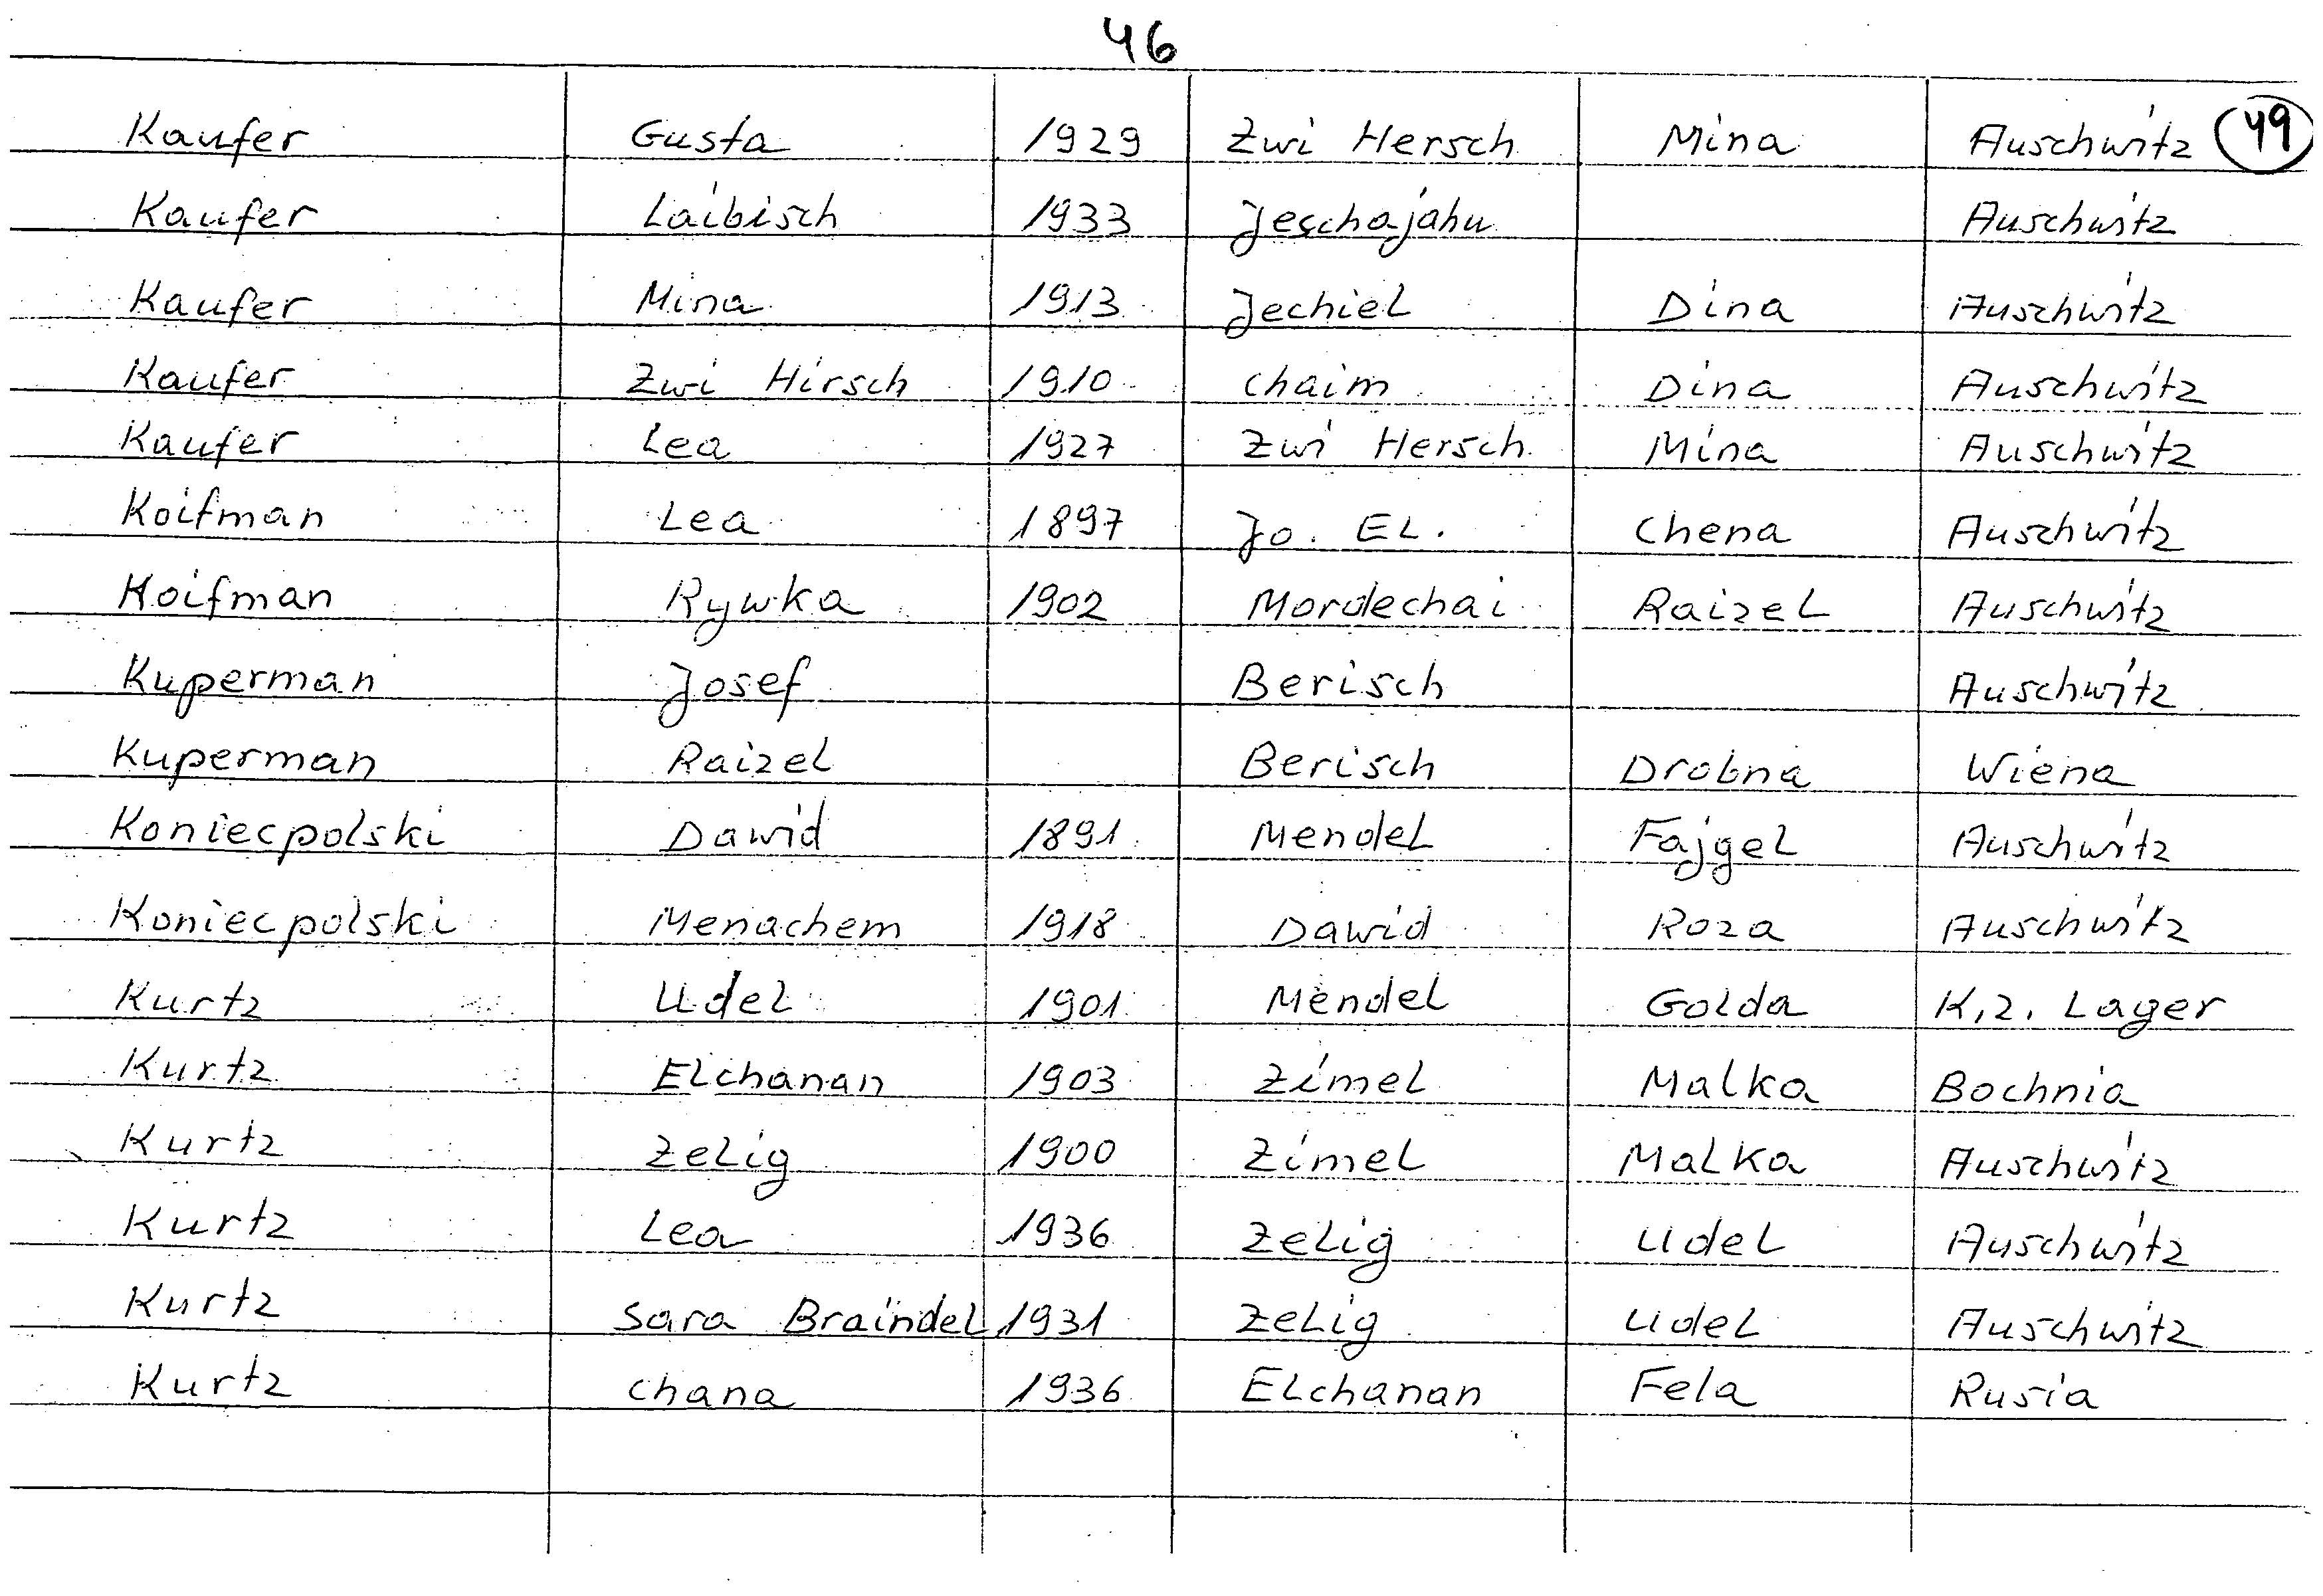 46
Kaufer Gusta 1929 Zwi Hersch Mina Auschwitz 49
Kaufer Laibisch 1933 Jeschajahu Auschwitz
Kaufer Mina 1913 Jechiel Dina Auschwitz
Kaufer Zwi Hirsch 1910 Chaim Dina Auschwitz
Kaufer Lea 1927 Zwi Hersch Mina Auschwitz
Koifman Lea 1897 Jo. EL. Chena Auschwitz
Koifman Rywka 1902 Mordechai Raizel Auschwitz
Kuperman Josef Berisch Auschwitz
Kuperman Raizel Berisch Drobna Wiena
Koniecpolski Dawid 1891 Mendel Fajgel Auschwitz
Koniecpolski Menachem 1918 Dawid Roza Auschwitz
Kurtz Udel 1901 Mendel Golda K.z. Lager
Kurtz Elchanan 1903 Zimel Malka Bochnia
Kurtz Zelig 1900 Zimel Malka Auschwitz
Kurtz Lea 1936 Zelig Udel Auschwitz
Kurtz Sara Braindel 1931 Zelig Udel Auschwitz
Kurtz Chana 1936 Elchanan Fela Rusia